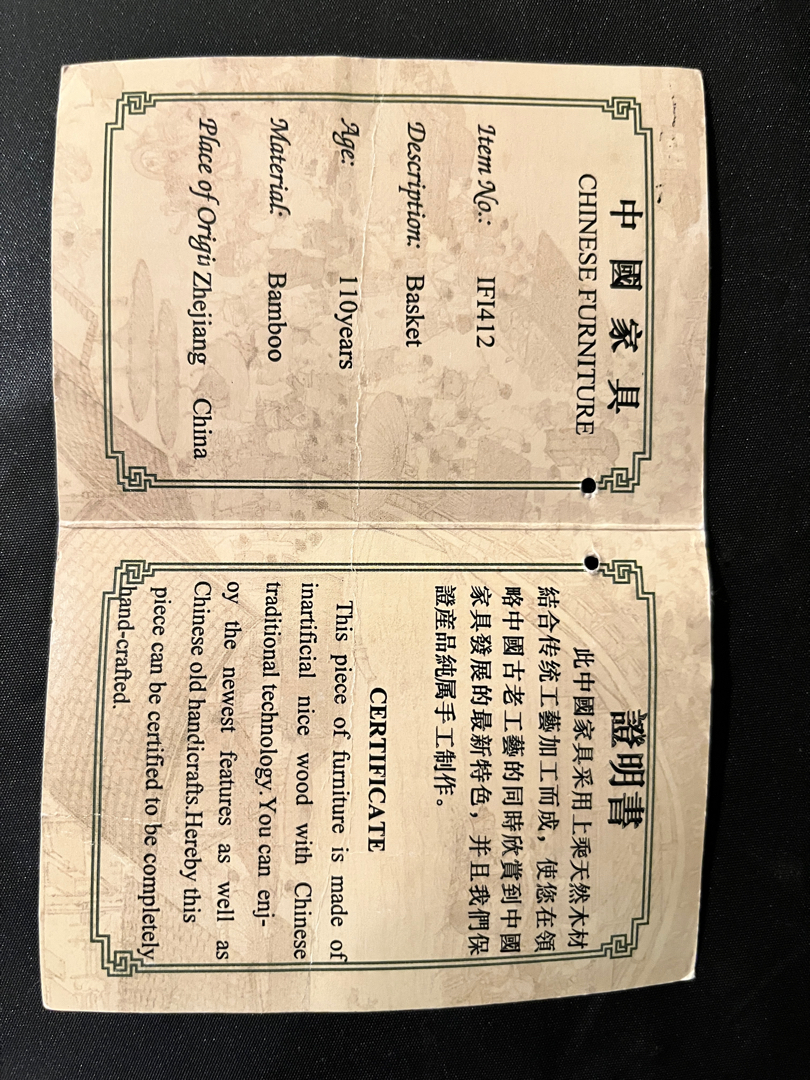 中國家具
CHINESE FURNITURE
Item No.: IFI412
Description: Basket
Age: 110years
Material: Bamboo
Place of Origi Zhejiang China
證明書
此中國家具采用上乘天然木材
結合传统工藝加工而成，使您在領
略中國古老工藝的同時欣賞到中國
家具發展的最新特色，并且我們保
證產品純属手工制作。
CERTIFICATE
This piece of furniture is made of
inartificial nice wood with Chinese
traditional technology.You can enj-
oy the newest features as well as
Chinese old handicrafts.Hereby this
piece can be certified to be completely
hand-crafted.